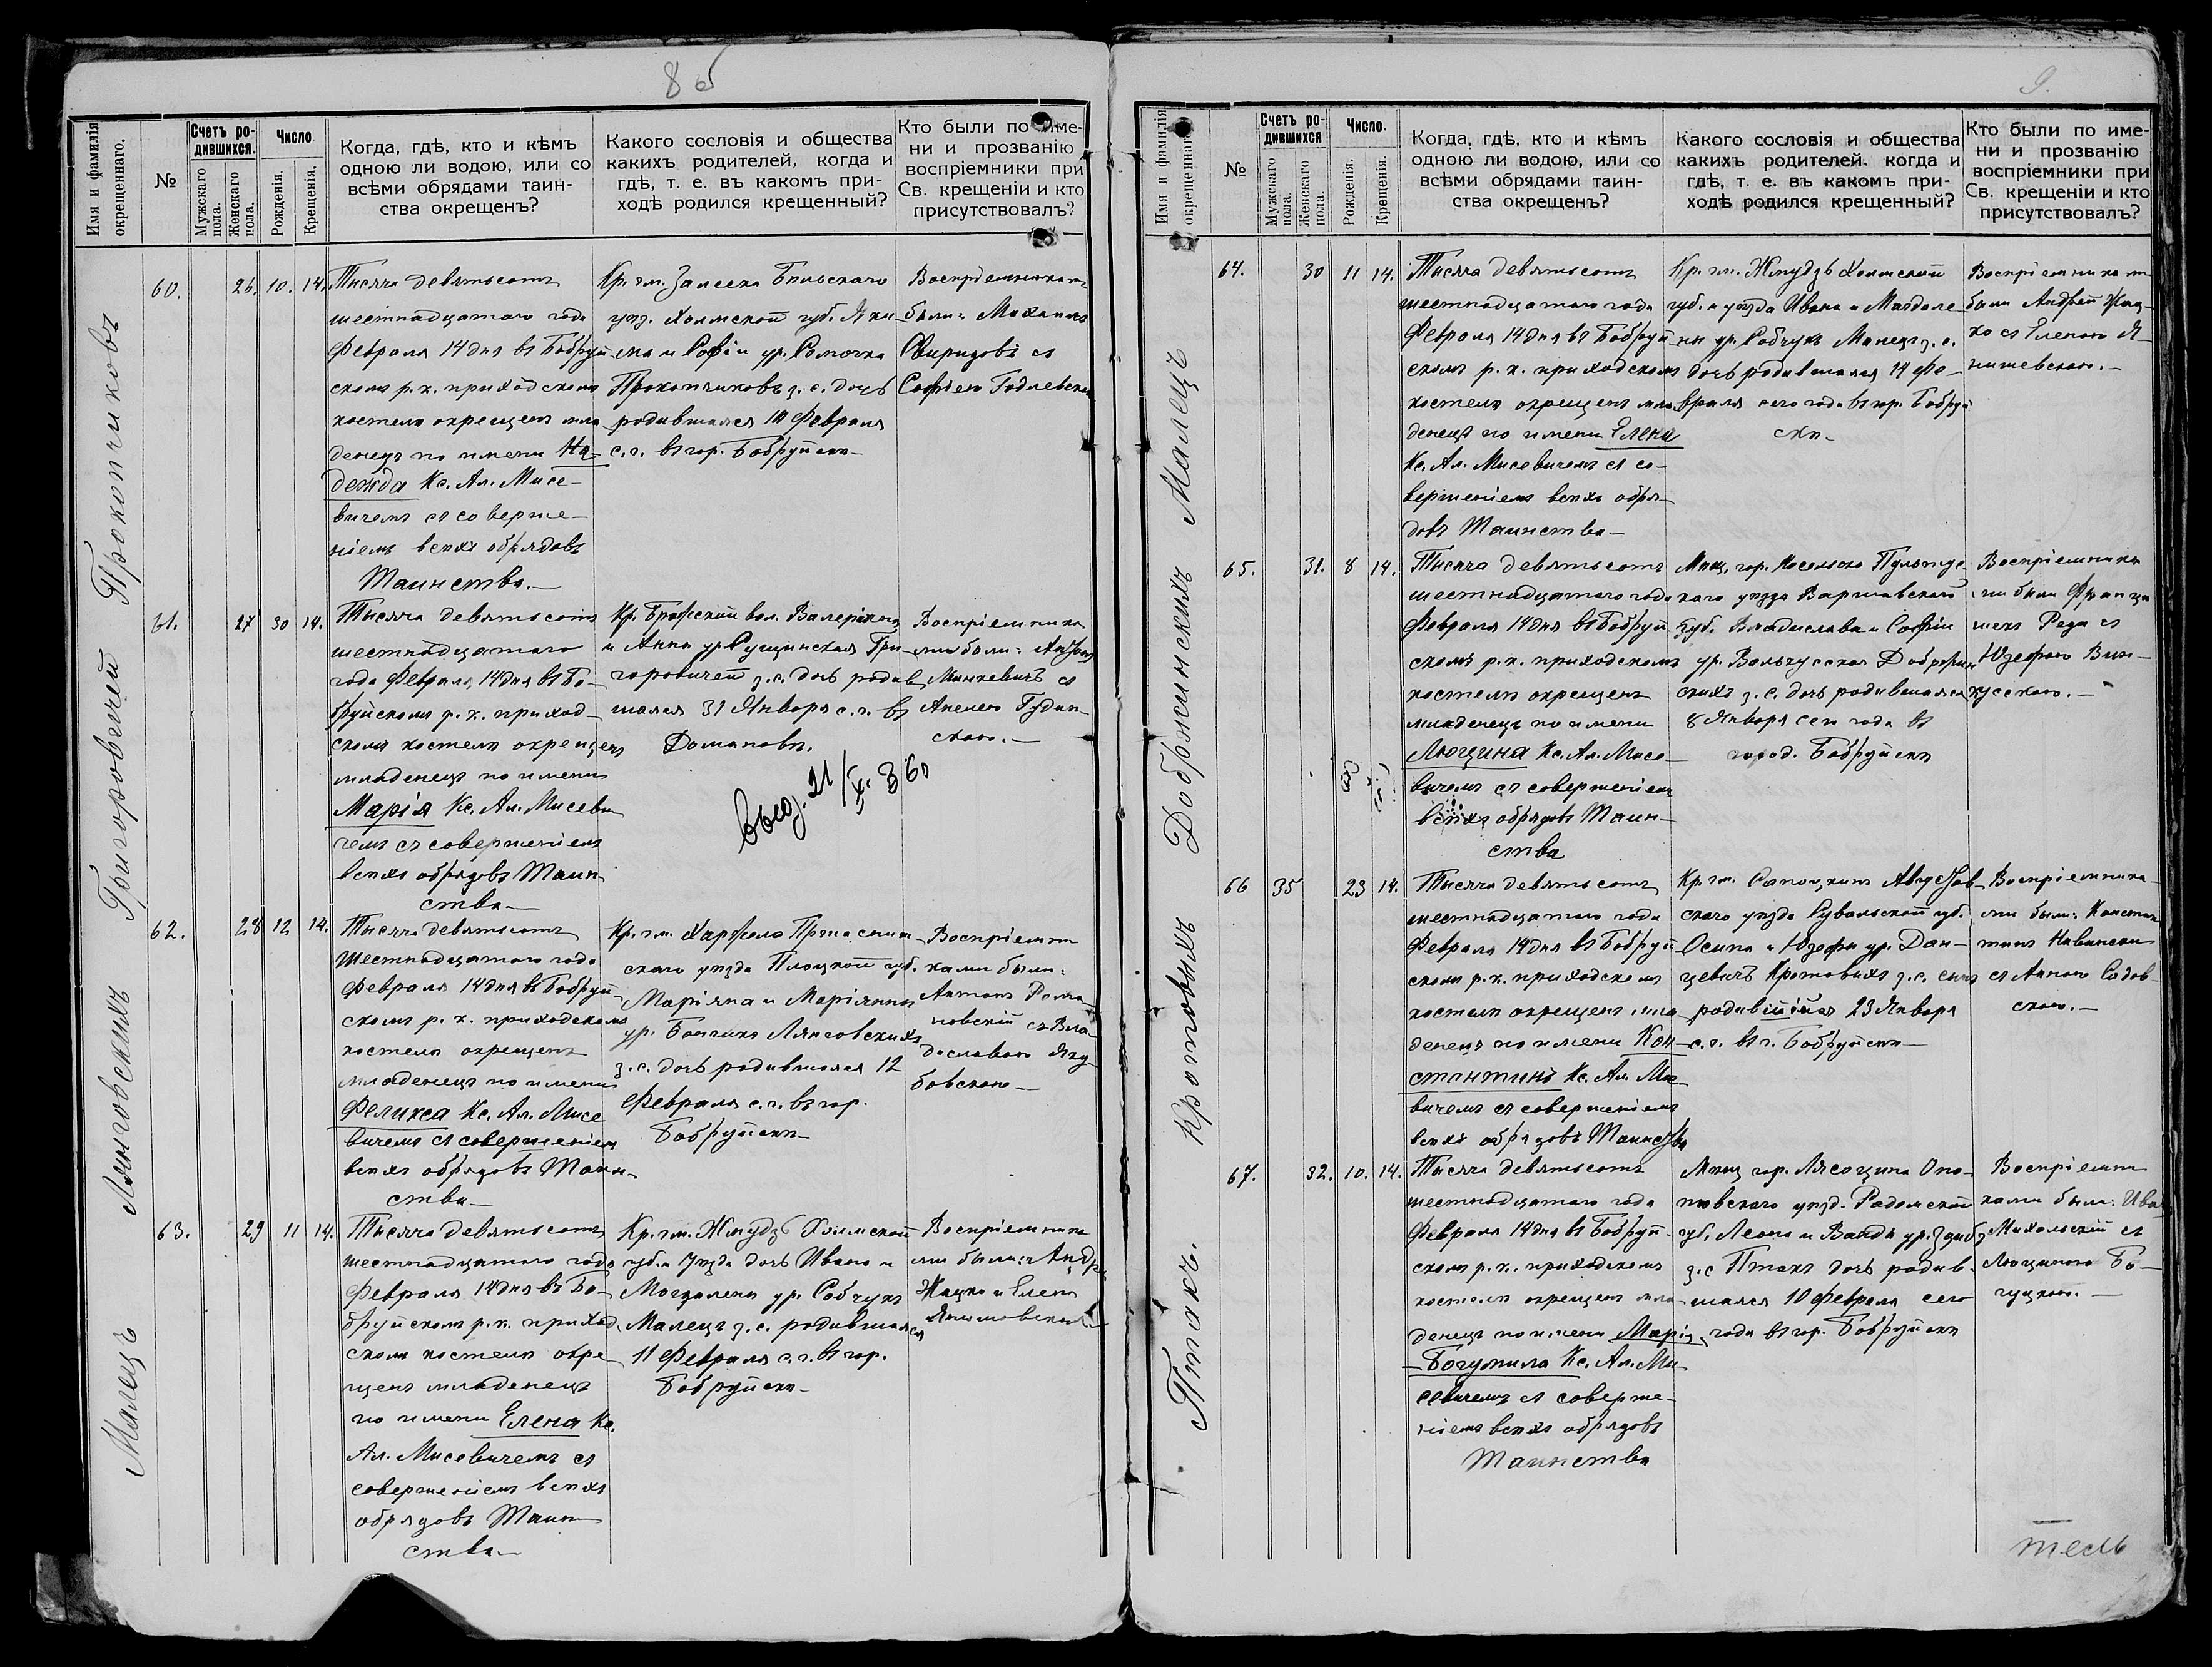 8 об
Имя и фамилія окрещеннаго.
№
Счетъ родившихся.
Мужскаго пола.
Женскаго пола.
Число
Рожденія.
Крещенія.
Когда, гдѣ, кто и кѣмъ
одною ли водою, или со
всѣми обрядами таин-
ства окрещенъ?
Какого сословія и общества
какихъ родителей, когда и
гдѣ, т. е. въ какомъ при-
ходѣ родился крещенный?
Кто были по име-
ни и прозванію
воспріемники при
Св. крещеніи и кто
присутствовалъ?
Прокопчиковъ
60. 26. 10. 14.
Тысяча девятьсотъ
шестнадцатаго года
Февраля 14 дня въ Бобруй
скомъ р. к. приходскомъ
костелѣ окрещенъ мла
денецъ по имени На-
дежда Кс. Ал. Мисе-
вичемъ съ соверше-
ніемъ всѣхъ обрядовъ
Таинства.—
Кр. гм. Залеска Бѣльскаго
уѣз. Холмской губ. Яки
ма и Софіи ур. Сомочка
Прокопчиковъ з. с. дочь
родившаяся 10 Февраля
с. г. въ гор. Бобруйскѣ—
Воспріемниками
были: Михаилъ
Свиридовъ съ
Софіею Годлевскою
Григоровичей
61. 27 30 14.
Тысяча девятьсотъ
шестнадцатаго
года Февраля 14 дня въ Бо-
бруйскомъ р. к. приход-
скомъ костелѣ окрещенъ
младенецъ по имени
Марія Кс. Ал. Мисеви
чемъ съ совершеніемъ
всѣхъ обрядовъ Таин
ства—
Кр. вол. Валеріана
и Анны ур. Сущинская Гри-
горовичей з. с. дочь родив
шаяся 31 Января с. г. въ
Домановѣ.
выд. 21/X. 360
Воспріемника
ми были: Антонъ
Минкевичъ съ
Анелею Гудин-
скою.—
Лянговскихъ
62. 28 12 14.
Тысяча девятьсотъ
Шестнадцатаго года
Февраля 14 дня въ Бобруй-
скомъ р. к. приходскомъ
костелѣ окрещенъ
младенецъ по имени
Феликса Кс. Ал. Мисе
вичемъ съ совершеніемъ
всѣхъ обрядовъ Таин-
ства—
Кр. гм. Пржасныш
скаго уѣзда Плоцкой губ.
Маріяна и Маріянны
ур. Бончикъ Лянговскихъ
з. с. дочь родившаяся 12
Февраля с. г. въ гор.
Бобруйскѣ—
Воспріемни
ками были:
Антонъ Рома
новскій съ Вла
диславою Яку
бовскою—
Малецъ
63. 29 11 14.
Тысяча девятьсотъ
шестнадцатаго года
Февраля 14 дня въ Бо-
бруйскомъ р. к. приход.
скомъ костелѣ окре
щенъ младенецъ
по имени Елена Кс.
Ал. Мисевичемъ съ
совершеніемъ всѣхъ
обрядовъ Таин
ства—
Кр. гм. Жмудзь Холмской
губ. и Уѣзда дочь Ивана и
Магдалены ур. Собчукъ
Малецъ з. с. родившаяся
11 Февраля с. г. въ гор.
Бобруйскѣ—
Воспріемника
ми были: Андрей
Жацко и Елена
Янишевская
9.
Имя и фамилія окрещеннаго.
№
Счетъ родившихся
Мужскаго пола.
Женскаго пола.
Число.
Рожденія.
Крещенія.
Когда, гдѣ, кто и кѣмъ
одною ли водою, или со
всѣми обрядами таин-
ства окрещенъ?
Какого сословія и общества
какихъ родителей. когда и
гдѣ, т. е. въ какомъ при-
ходѣ родился крещенный?
Кто были по име-
ни и прозванію
воспріемники при
Св. крещеніи и кто
присутствовалъ?
Малецъ
64. 30 11 14.
Тысяча девятьсотъ
шестнадцатаго года
Февраля 14 дня въ Бобруй
скомъ р. к. приходскомъ
костелѣ окрещенъ мла
денецъ по имени Елена
Кс. Ал. Мисевичемъ съ со-
вершеніемъ всѣхъ обря-
довъ Таинства—
Кр. гм. Жмудзь Холмской
губ. и уѣзда Ивана и Магдале
ны ур. Собчукъ Малецъ з. с.
дочь родившаяся 11 Фе-
враля сего года въ гор. Бобруй
скѣ—
Воспріемниками
были Андрей Жац-
ко съ Еленою Я-
нишевскою.—
Добржинскихъ
65. 31. 8 14.
Тысяча девятьсотъ
шестнадцатаго года
Февраля 14 дня въ Бобруй
скомъ р. к. приходскомъ
костелѣ окрещенъ
младенецъ по имени
Люцина Кс. Ал. Мисе-
вичемъ съ совершеніемъ
всѣхъ обрядовъ Таин-
ства
Мѣщ. гор. Пультус-
каго уѣзда Варшавской
губ. Владислава и Софіи
ур. Добржин
скихъ з. с. дочь родившаяся
8 Января сего года въ
город. Бобруйскѣ
Воспріемника
ми были Франци
шекъ Реда съ
Юзефою Вин-
кусскою.—
Кротовыхъ
66 35 23 14.
Тысяча девятьсотъ
шестнадцатаго года
Февраля 14 дня въ Бобруй
скомъ р. к. приходскомъ
костелѣ окрещенъ мла
денецъ по имени Кон-
стантинъ Кс. Ал. Мисе
вичемъ съ совершеніемъ
всѣхъ обрядовъ Таинства
Кр. гм. Сапоцкинъ Августов-
скаго уѣзда Сувальской губ.
Осипа и Юзефы ур. Дан-
цевичъ Кротовыхъ з. с. сынъ
родившійся 23 Января
с. г. въ г. Бобруйскѣ—
Воспріемника-
ми были: Констан
тинъ Навинскій
съ Анною Садов-
скою.—
Птакъ.
67. 32. 10. 14.
Тысяча девятьсотъ
шестнадцатаго года
Февраля 14 дня въ Бобруй-
скомъ р. к. приходскомъ
костелѣ окрещенъ мла-
денецъ по имени Марія
-Богумила Кс. Ал. Ми-
севичемъ съ соверше-
ніемъ всѣхъ обрядовъ
Таинства
Мѣщ гор. Лясоцина Опа-
товскаго уѣзд. Радомской
губ. Леона и Ванды ур.
з. с Птакъ дочь родив.
шаяся 10 Февраля сего
года въ гор. Бобруйскѣ
Воспріемни
ками были: Иван
Михальскій съ
Люциною Бо-
гуцкою.—
тель